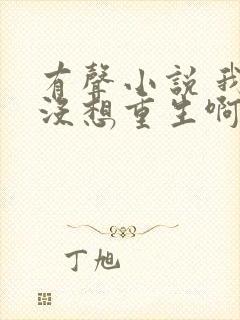 有聲小說 我
沒想重生啊
丁旭